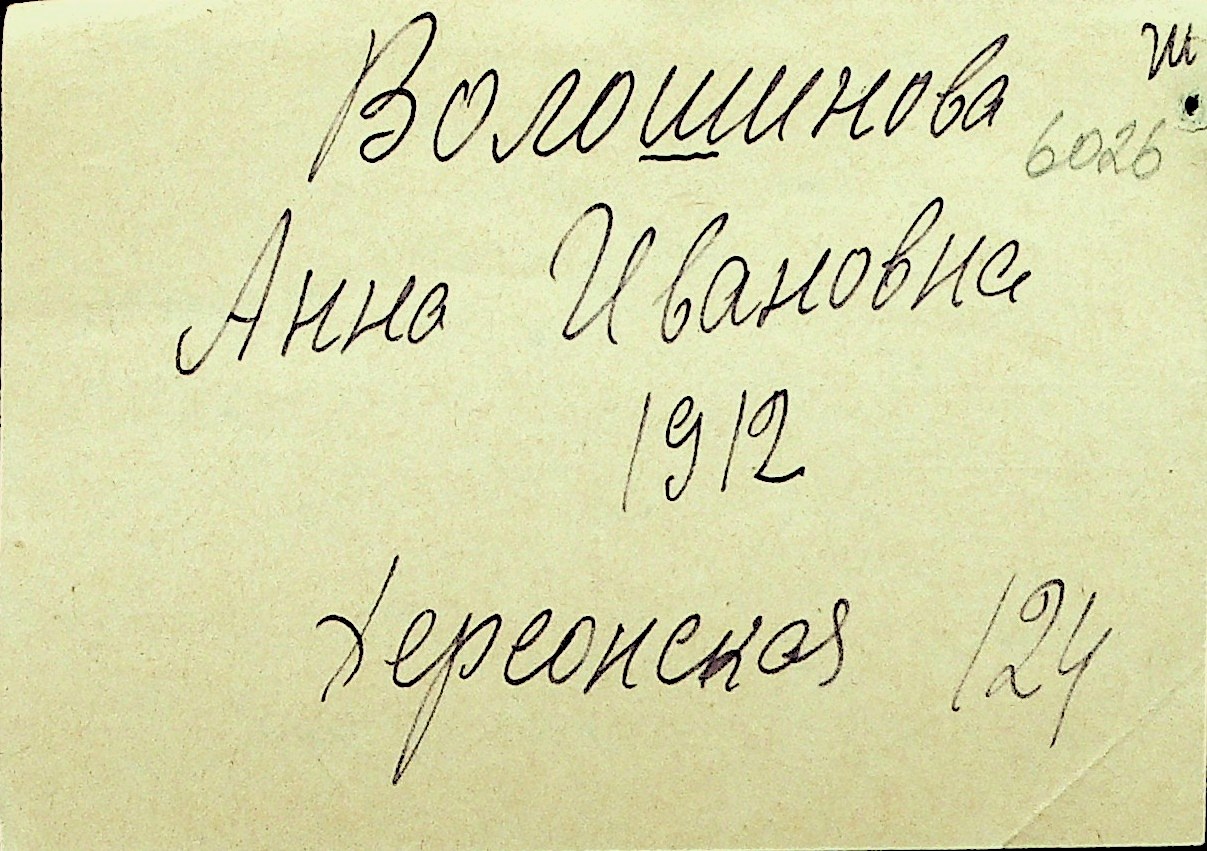 Ш
Волошинова
6026
Анна Ивановна
1912
Херсонская 124